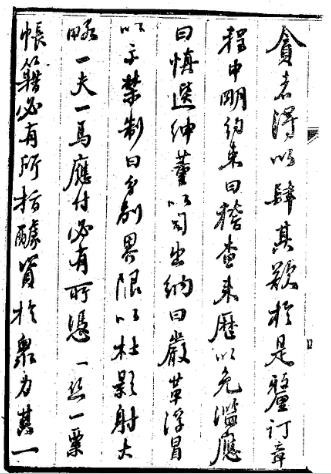 貪者得以肆其欺於是釐訂章
程申明約束曰稽查来歷以免濫應
曰慎選紳董以司出納曰嚴革浮冒
以示禁制曰分別界限以杜影射大
略一夫一馬應付必有所憑一丝一粟
帳籍必有所指醵資於衆力其一